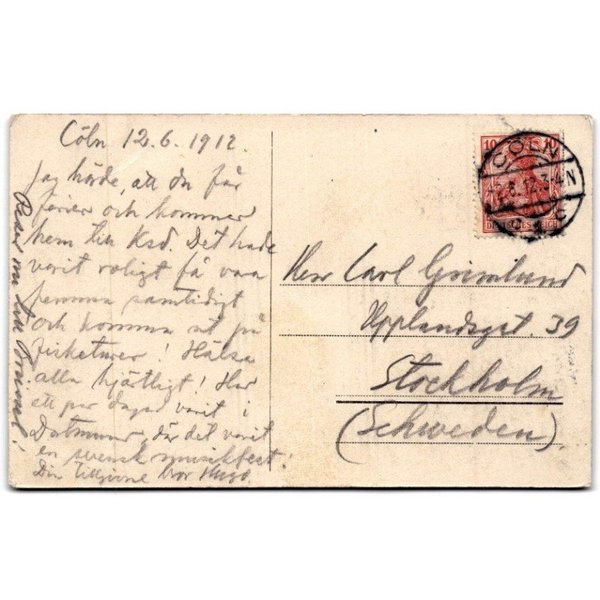 Cöln 12.6.1912.
Jag hörde, att du får
ferier och kommer
hem till Ksd. Det hade
varit roligt få vara
hemma samtidigt
och komma ut på
fisketurer! Hälsa
alla hjärtligt! Har
ett par dagar varit i
Dortmund, där det varit
en svensk musikfest!
Din tillgivne bror Hugo.
Reser nu till
10 10
DEUTSCHES REICH
CÖLN
Herr Carl Grimlund
Upplandsgat. 39
Stockholm
(Schweden)